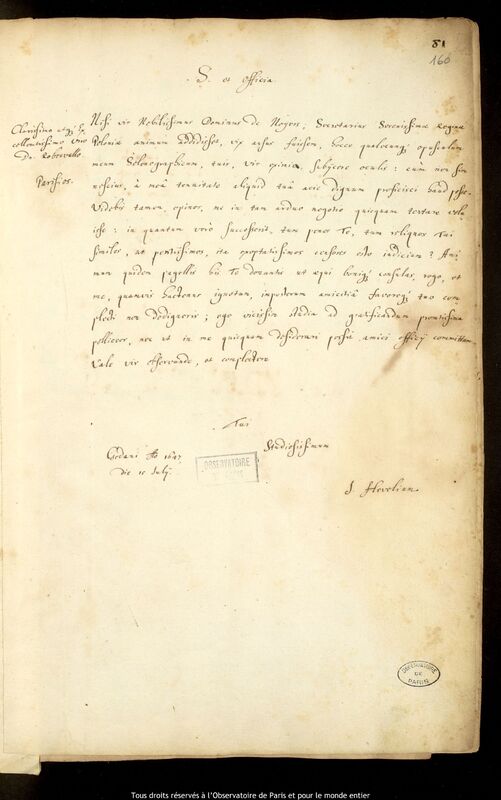 81
160
S. et officia
Clarissimo atque Ex
cellentissimo viro
Dn. Robervallo
Parisios.
Nisi vir Nobilissimus Dominus de Noyers, Secretarius Serenissimæ Reginæ
Poloniæ animum addidisset, vix ausus fuissem, hocce qualecunq; opusculum
meum Selenographicum, tuis, vir eximie, subjicere oculis: cum non sim
nescius, à meâ tenuitate aliquid tuâ acie dignum proficisci haud posse.
Videbis tamen, opinor, me in tam arduo negotio quicquam tentare volu
isse: in quantum verò successerit, tum penes Te, tum reliquos Tui
similes, ut peritissimos, ita exoptatissimos censores esto iudicium. Ani
mum quidem pagellis his Te donantis ut æqui boniq; consulas, rogo, et
me, quamvis hactenus ignotum, imposterum amicitiâ favoreq; tuo com
plecti non dedigneris; ego vicissim studia ad gratificandum promtissima
polliceor, nec ut in me quicquam desiderari possit amici officij committam.
Vale vir observande, et complectere
Tui
Studiosissimum
Gedani Ao 1647
die 10 July
OBSERVATOIRE
J. Hevelium
OBSERVATOIRE
DE
PARIS
Tous droits réservés à l'Observatoire de Paris et pour le monde entier